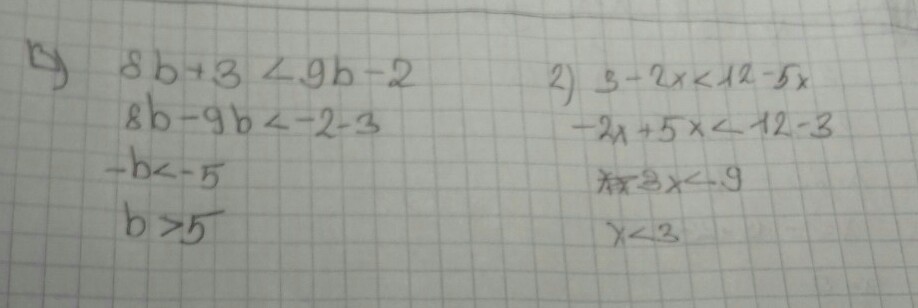 1) 8b+3<9b-2
8b-9b<-2-3
-b<-5
b>5
2) 3-2x<12-5x
-2x+5x<12-3
3x<9
x<3